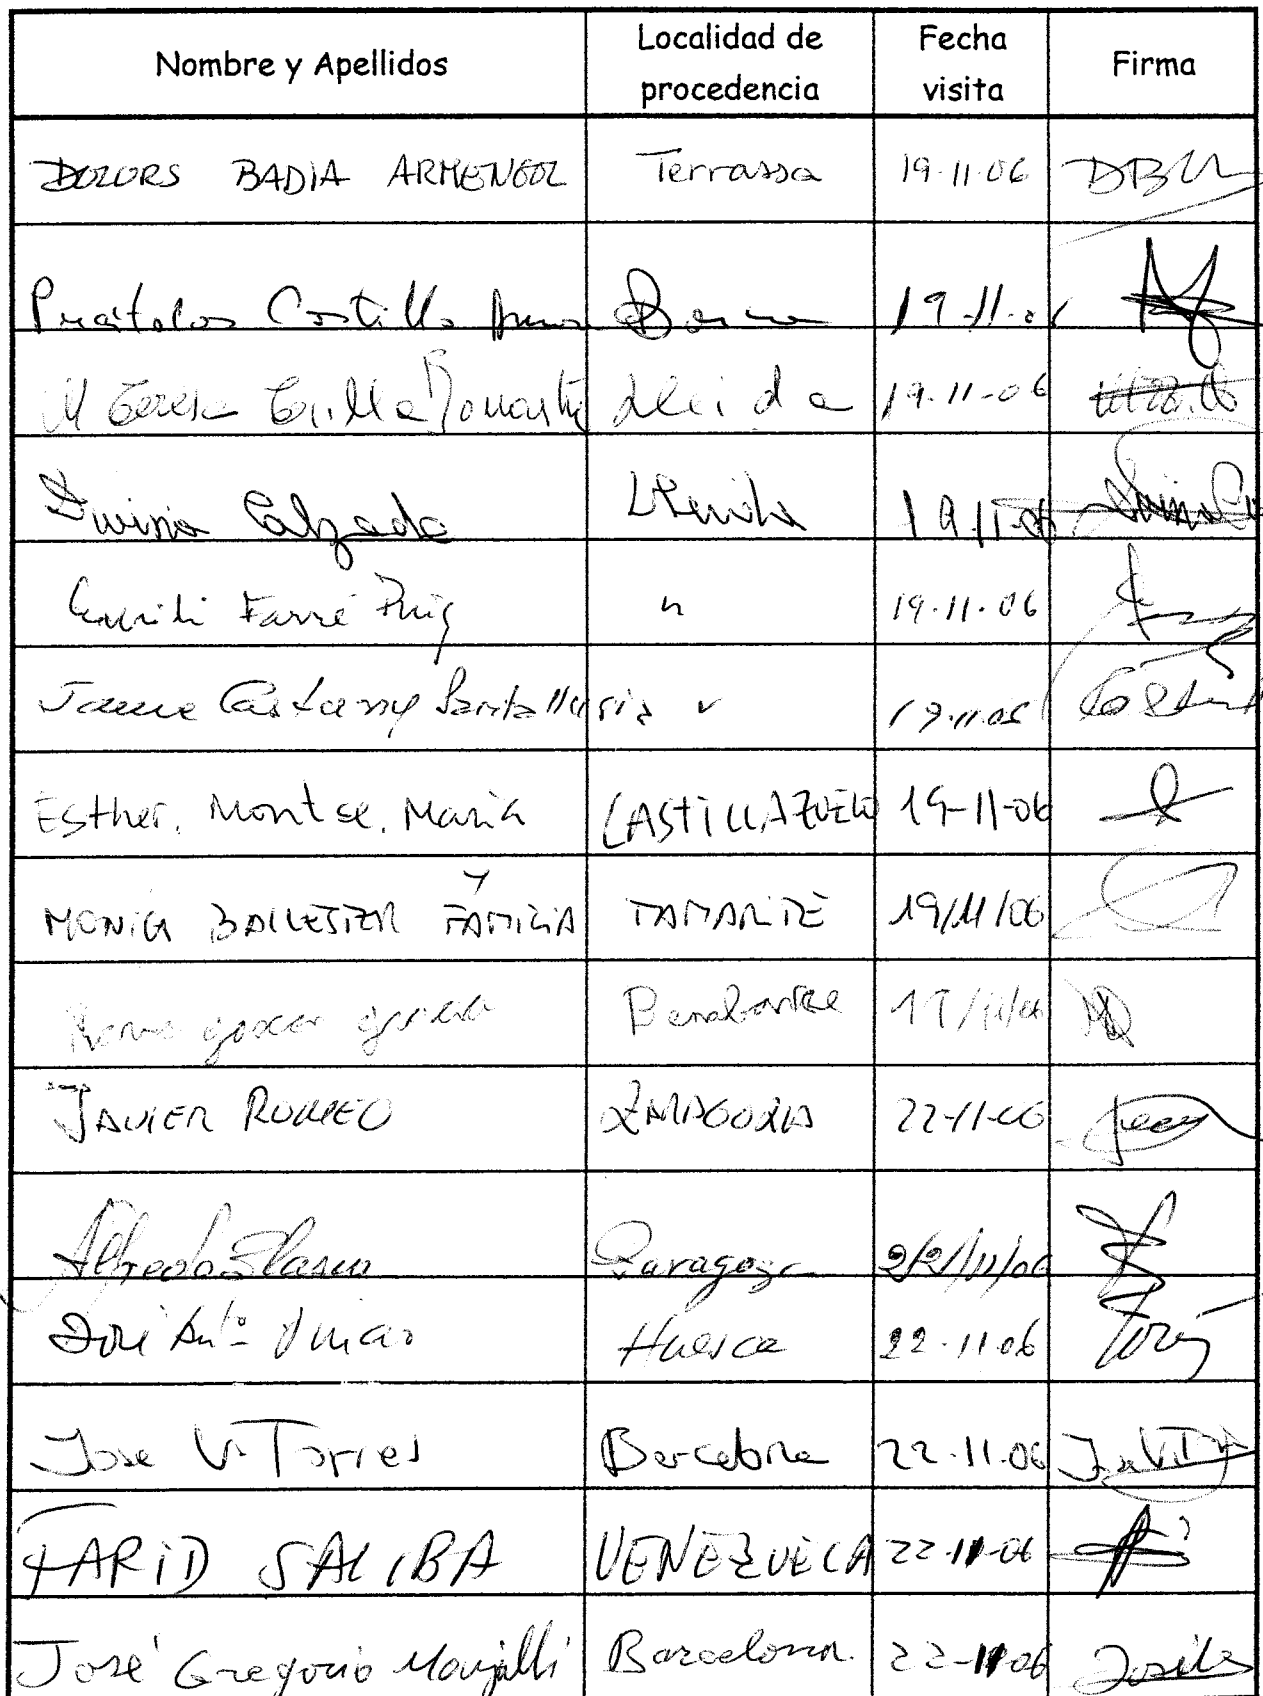 Nombre y Apellidos Localidad de procedencia Fecha visita Firma
DOLORS BADIA ARMENGOL Terrassa 19-11-06
Castillo 19-11-06
Mª Teresa Lleida 19-11-06
Divina Calzada Lleida 19-11-06
Emili Farré Puig " 19-11-06
Jaume Castany " 19-11-06
Esther, Montse, María CASTILLAZUELO 19-11-06
MONICA BALLESTER Y FAMILIA TAMARITE 19/11/06
Benabarre 19/11/06
JAVIER ROMEO ZARAGOZA 22-11-06
Alfredo Zaragoza 22/11/06
José Antº Huesca 22-11-06
Jose V. Torres Barcelona 22-11-06
FARID SALIBA VENEZUELA 22-11-06
José Gregorio Barcelona 22-11-06